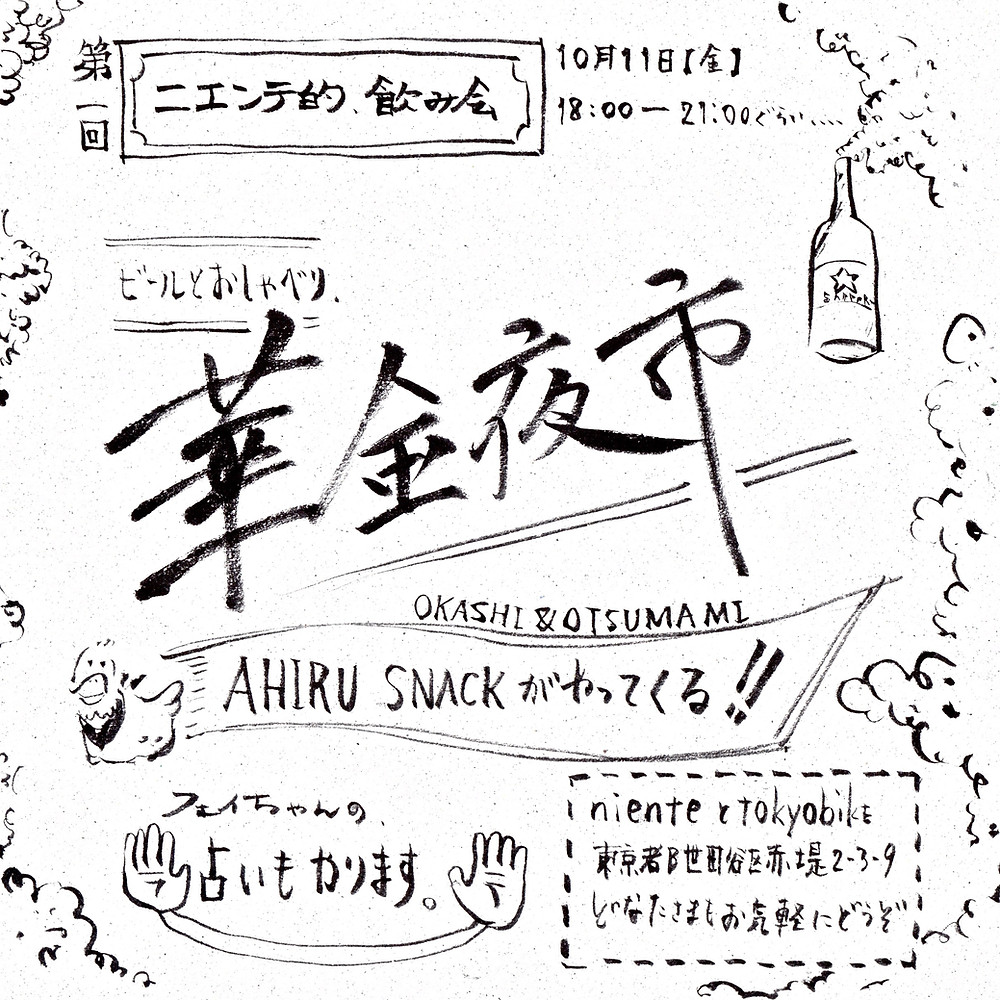 第一回
ニエンテ的、飲み会
10月11日【金】
18:00ー21:00ぐらい....
ビールとおしゃべり、
華金夜市
OKASHI & OTSUMAMI
AHIRU SNACKがやってくる!!
フェイちゃんの、
占いもやります。
niente と tokyobike
東京都世田谷区赤堤2-3-9
どなたさまもお気軽にどうぞ